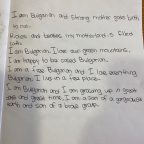 I am Bulgarian and strong mother gave birth
to me.
Riches and beauties my motherland is filled
with.
I am Bulgarian. I love our green mountains,
I am happy to be called Bulgarian.
I am a free Bulgarian and I love everything
Bulgarian. I live in a free place.
I am Bulgarian and I am growing up in great
and great time, I am a son of a
and son of a brave